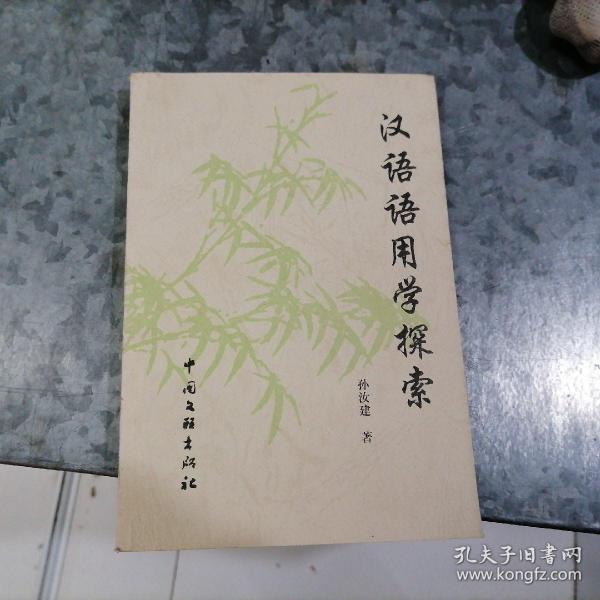 汉语语用学探索
孙汝建 著
中国文联出版社
孔夫子旧书网
www.kongfz.com